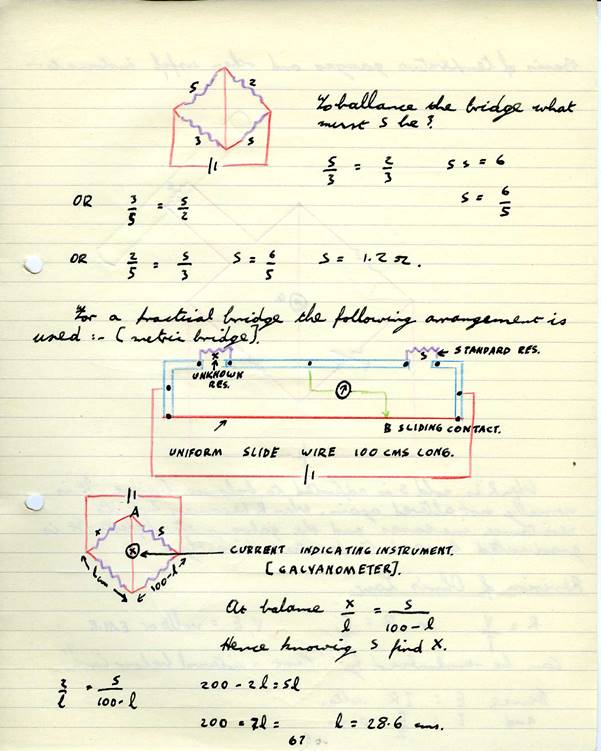 5 2
3 s
To ballance the bridge what
must S be?
5/3 = 2/3 5 s = 6
s = 6/5
OR 3/5 = s/2
OR 2/5 = s/3 S = 6/5 S = 1.2 Ω.
For a practical bridge the following arrangement is
used :- [metric bridge].
X S ← STANDARD RES.
UNKNOWN
RES.
B SLIDING CONTACT.
UNIFORM SLIDE WIRE 100 CMS LONG.
A
X S
l cm 100-l
CURRENT INDICATING INSTRUMENT.
[GALVANOMETER].
At balance X/l = S/100-l
Hence knowing S find X.
2/l = 5/100-l 200 - 2l = 5l
200 = 7l = l = 28.6 cms.
67